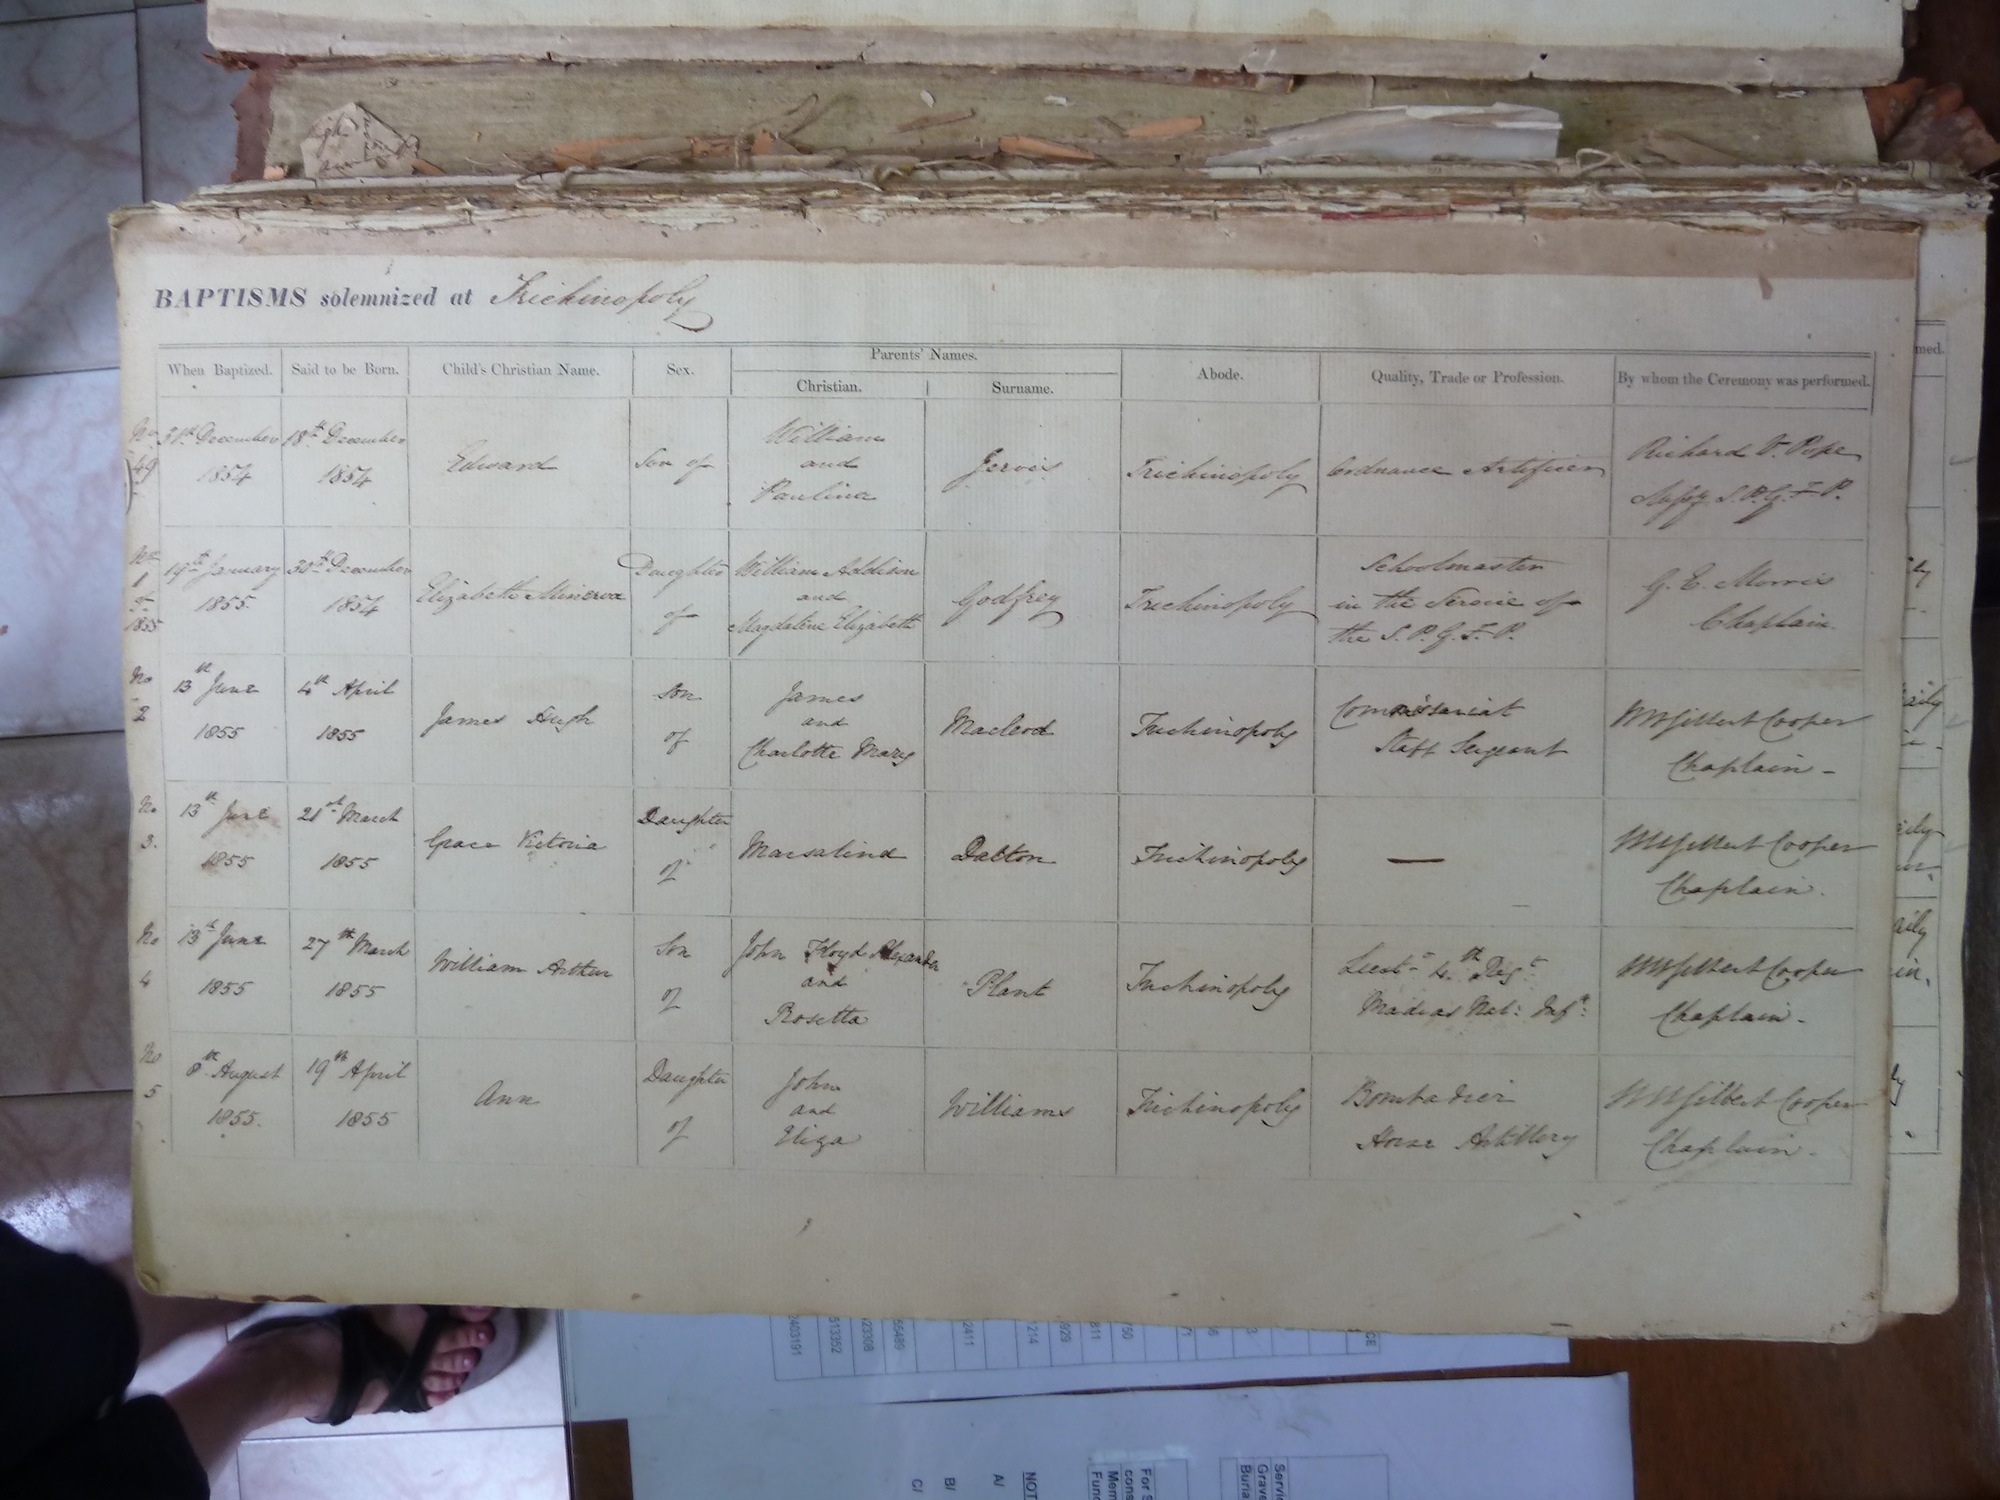 BAPTISMS solemnized at Trichinopoly
When Baptized. Said to be Born. Child's Christian Name. Sex. Parents' Names. Abode. Quality, Trade or Profession. By whom the Ceremony was performed.
Christian. Surname.
No 49 31st December 1854
18th December 1854
Edward
Son of
William
and
Paulina
Jervis
Trichinopoly
Ordnance Artificer
Richard V. Pope
Missy S. P. G. F. P.
No 1 of 1855
19th January
1855.
30th December
1854
Elizabeth Minerva
Daughter
of
William Addison
and
Magdaline Elizabeth
Godfrey
Trichinopoly
Schoolmaster
in the Service of
the S. P. G. F. P.
G. E. Morris
Chaplain.
No 2
13th June
1855
4th April
1855
James Hugh
Son
of
James
and
Charlotte Mary
Macleod
Trichinopoly
Commissariat
Staff Sergeant
Gilbert Cooper
Chaplain -
No 3.
13th June
1855
21st March
1855
Grace Victoria
Daughter
of
Marsalind
Dalton
Trichinopoly
—
Gilbert Cooper
Chaplain.
No 4
13th June
1855
27th March
1855
William Arthur
Son
of
John Floyd Alexander
and
Rosetta
Plant
Trichinopoly
Lieut. 4th Regt.
Madras Nat: Inf:
Gilbert Cooper
Chaplain -
No 5
8th August
1855.
19th April
1855
Ann
Daughter
of
John
and
Eliza
Williams
Trichinopoly
Bombadier
Horse Artillery
Gilbert Cooper
Chaplain -
med.
2403191
513352
223308
55489
2411
1214
929
811
750
NOT
A/
B/
C/
For S
cons
Mem
Fund
Servic
Grave
Buria